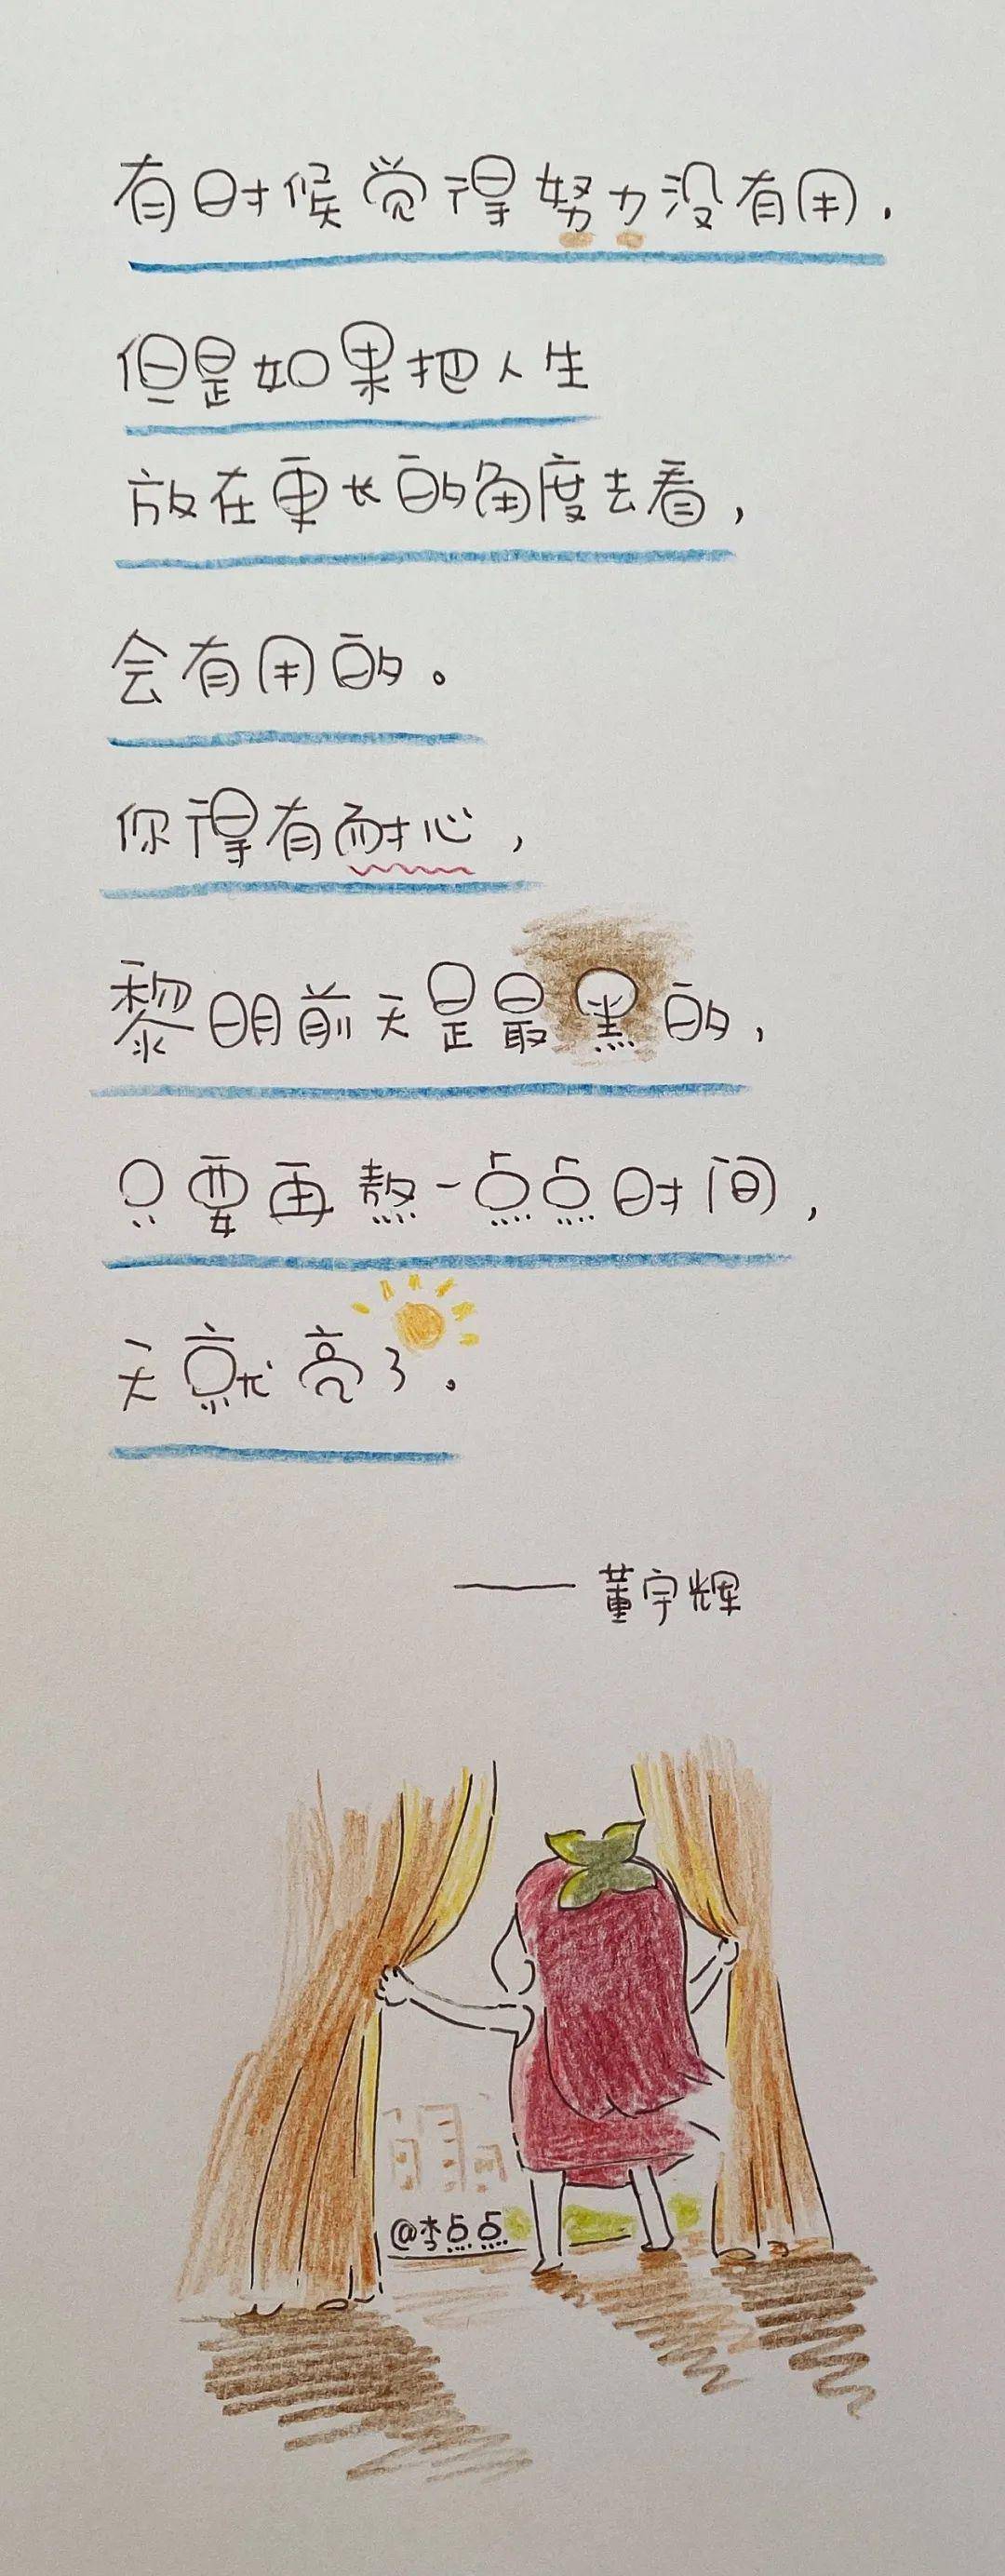 有时候觉得努力没有用.
但是如果把人生
放在更长的角度去看,
会有用的。
你得有耐心,
黎明前天是最黑的,
只要再熬一点点时间,
天就亮了。
——董宇辉
@李点点